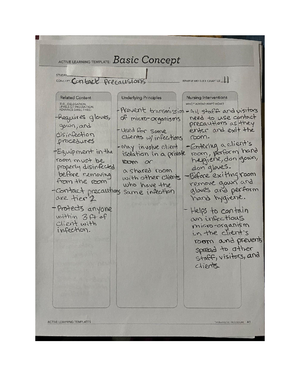 ACTIVE LEARNING TEMPLATE: Basic Concept
CONCEPT Contact Precautions
REVIEW MODULE CHAPTER 11
Related Content
- Requires gloves,
gown, and
disinfection
procedures
- Equipment in the
room must be
properly disinfected
before removing
from the room
- Contact precautions
are tier 2
- Protects anyone
within 3 ft of
client with
infection.
Underlying Principles
- Prevent transmission
of micro-organisms
- Used for some
clients w/ infections
- May involve client
isolation in a private
room or
a shared room
with other clients
who have the
same infection
Nursing Interventions
- All staff and visitors
need to use contact
precautions as they
enter and exit the
room.
- Entering a client's
room, perform hand
hygiene, don gown,
don gloves.
- Before exiting room
remove gown and
gloves and perform
hand hygiene.
- Helps to contain
an infectious
micro-organism
in the client's
room and prevents
spread to other
staff, visitors, and
clients.
ACTIVE LEARNING TEMPLATES